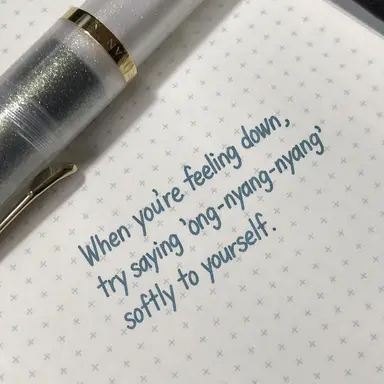 When you're feeling down,
try saying 'ong-nyang-nyang'
softly to yourself.